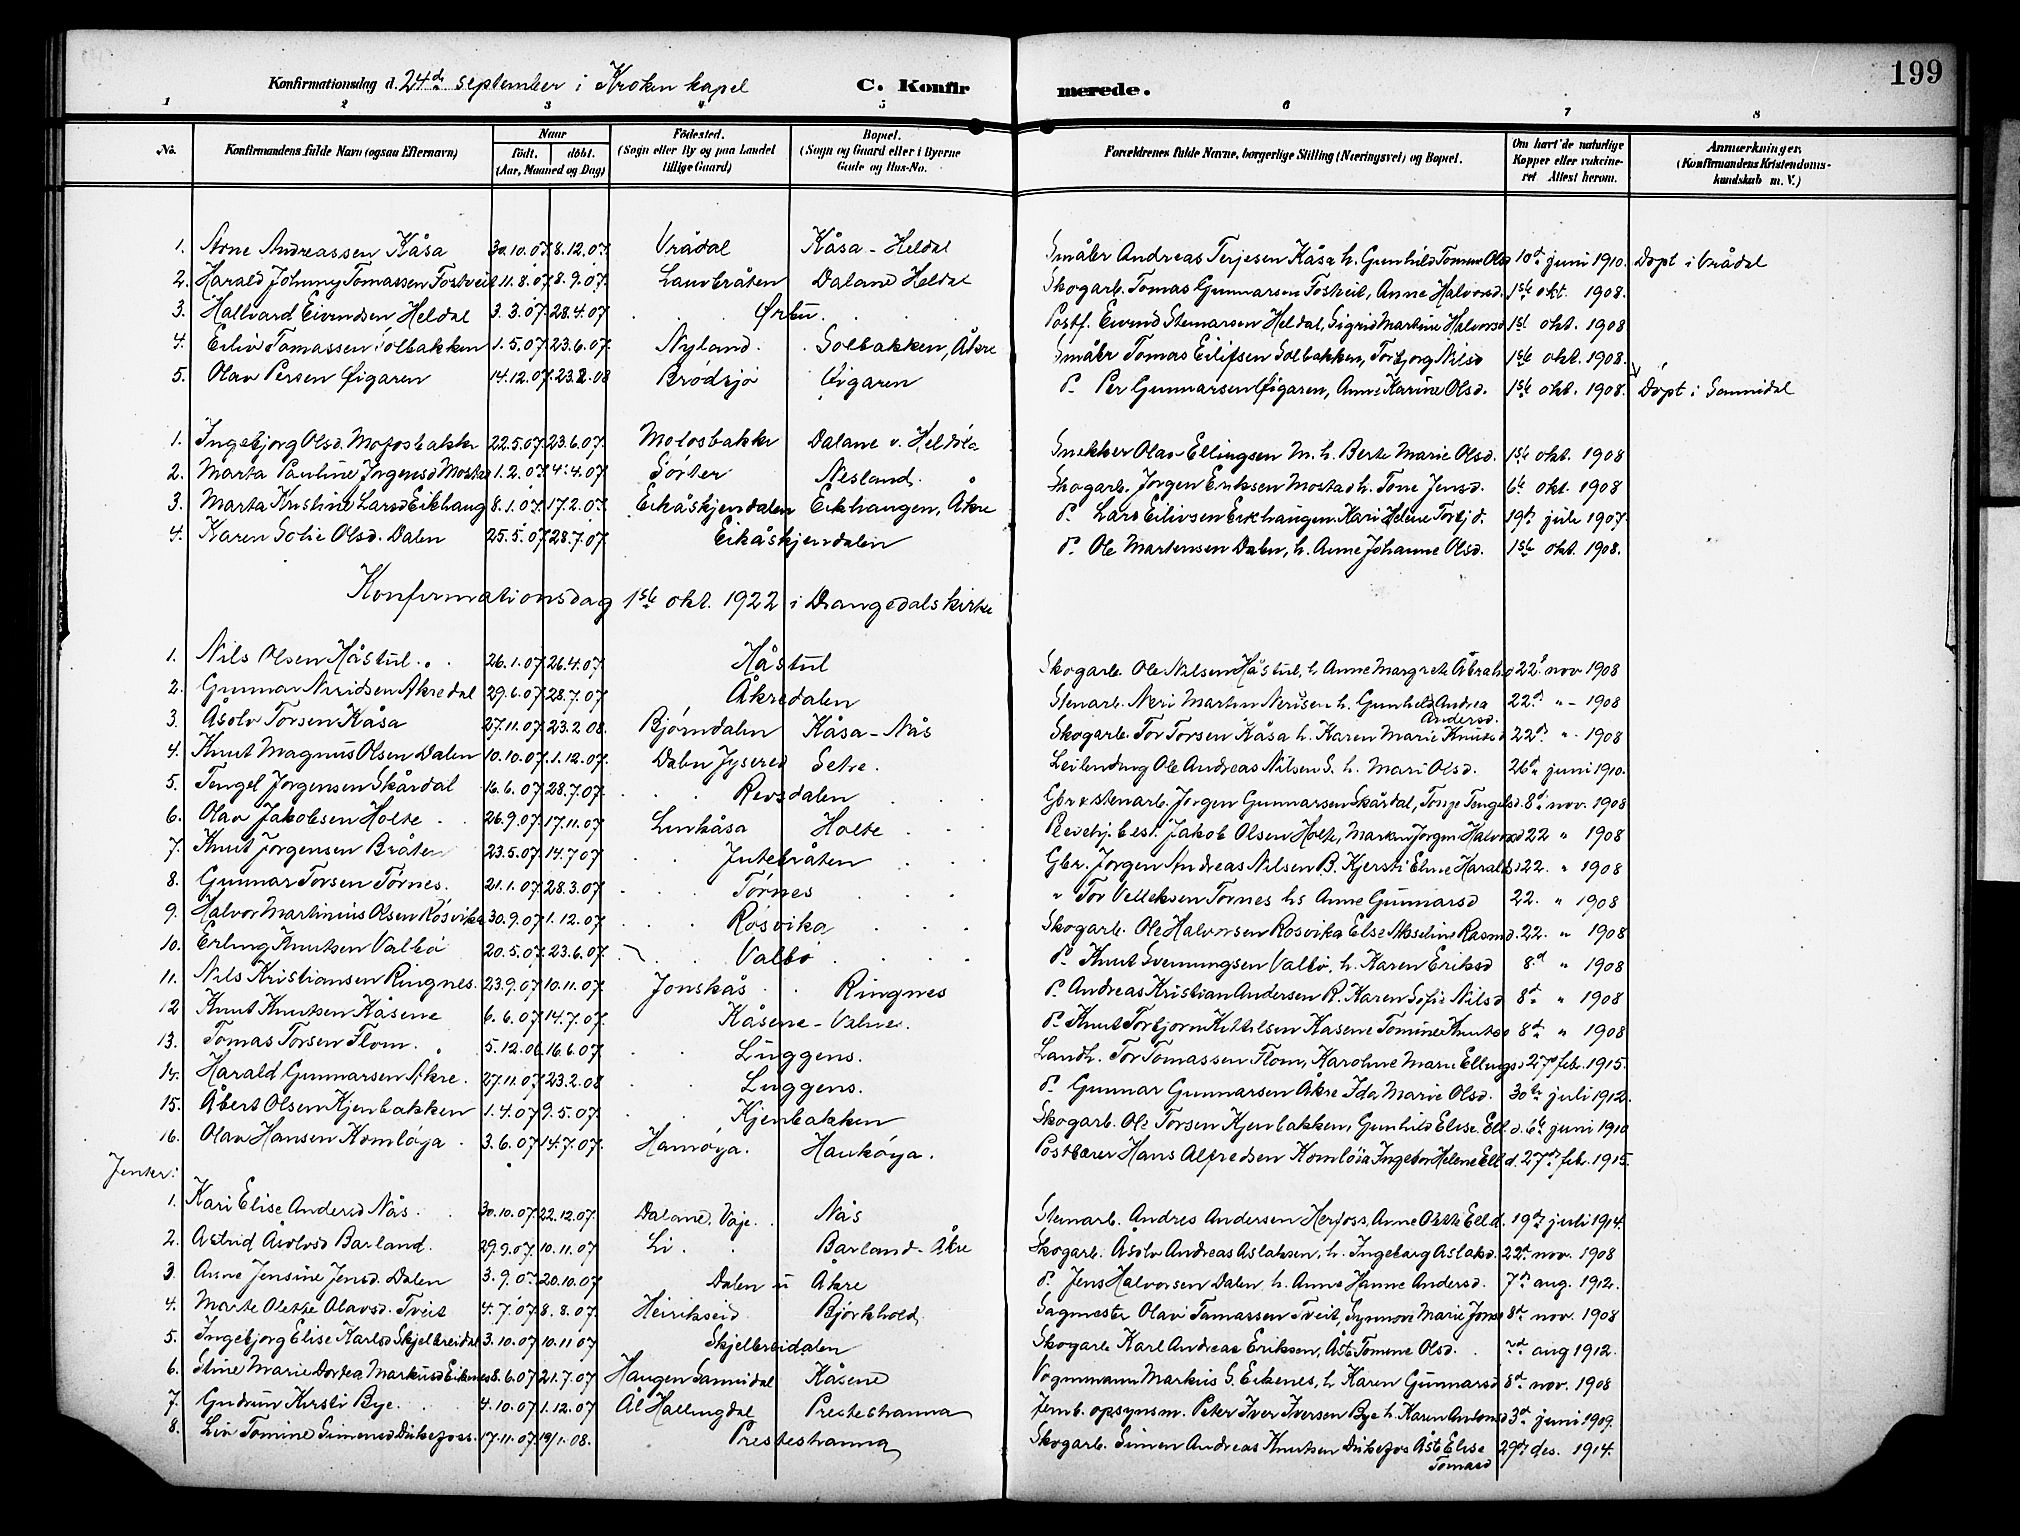 199
Konfirmationsdag d. 24de september i Kroken kapel C. Konfirmerede.
1 2 3 4 5 6 7 8
No. Konfirmandens fulde Navn (ogsaa Efternavn) Naar født. døbt. (Aar, Maaned og Dag) Fødested. (Sogn eller By og paa Landet tillige Gaard) Bopæl. (Sogn og Gaard eller i Byerne Gade og Hus-No. Forældrenes fulde Navne, borgerlige Stilling (Næringsvei) og Bopæl. Om havt de naturlige Kopper eller vaccineret Attest herom. Anmærkninger. (Konfirmandens Kristendomskundskab m. V.)
1. Arne Andreassen Kåsa 30.10.07 8.12.07. Vrådal Kåsa - Heldal Småbr Andreas Terjesen Kåsa h. Gunhild Tomine Olsd 10de juni 1910. Døpt i Vrådal
2. Harald Johnny Tomassen Fostveit 11.8.07 8.9.07. Lauvbråten Dalane Heldal Skogarb. Tomas Gunnarsen Fosteit, Anne Halvorsd. 1ste okt. 1908.
3. Hallvard Eivendsen Heldal 3.3.07 28.4.07 Ørbu Postf. Eivend Steinarsen Heldal, Sigrid Martine Halvorsd 1st okt. 1908
4. Eiliv Tomassen Solbakken 1.5.07 23.6.07. Nyland. Solbakken, Åkre Småbr Tomas Eilifsen Solbakken, Torbjorg Nilsd 1ste okt. 1908.
5. Olav Persen Øigaren 14.12.07 23.2.08 Brødsjø Øigaren d. Per Gunnarsen Øigaren, Anne Karine Olsd. 1ste okt. 1908. Døpt i Sannidal
1. Ingebjorg Olsd. Mofosbakke 22.5.07 23.6.07. Mofosbakke Dalane v. Heldøla Snekker Olav Ellingsen M. h. Berte Marie Olsd. 1ste okt. 1908
2. Marta Pauline Jørgensd Mostad 1.2.07 4.4.07 Sørter Nesland. Skogarb. Jørgen Eriksen Mostad h. Tone Jensd. 6te okt. 1908
3. Marta Kristine Larsd Eikhaug 8.1.07. 17.2.07. Eikåskjendalen Eikhaugen, Åkre d. Lars Eilivsen Eikhaugen, Kari Helene Torbj.d. 19de juli 1907.
4. Karen Sofie Olsd. Dalen 25.5.07 28.7.07 Eikåskjendalen d. Ole Martensen Dalen, h. Anne Johanne Olsd. 1ste okt. 1908.
Konfirmationsdag 1ste okt. 1922 i Drangedals kirke
1. Nils Olsen Håstul 26.1.07 26.4.07. Håstul Skogarb. Ole Nilsen Håstul, h. Anne Margrete Åbrahd 22d nov 1908
2. Gunnar Neridsen Akredal 29.6.07 28.7.07 Åkredalen Stenarb. Neri Martin Nerisen h. Gunhild Andrea Andersd. 22d " - 1908
3. Åsolv Torsen Kåsa 27.11.07. 23.2.08. Bjørndalen Kåsa - Nås Skogarb. Tor Torsen Kåsa h. Karen Marie Knutsd 22d. " 1908
4. Knut Magnus Olsen Dalen 10.10.07. 1.12.07. Dalen Setre. Leilending Ole Andreas Nilsen S. h. Mari Olsd. 26d juni 1910.
5. Tengel Jørgensen Skårdal 16.6.07 28.7.07. Revsdalen Gbr & stenarb. Jørgen Gunnarsen Skårdal, Tonje Tengelsd. 8d. nov. 1908
6. Olav Jakobsen Holte 26.9.07. 17.11.07 Linkåsa Holte Jakob Olsen Holte, Maren Jørgen Halvorsd 22 " 1908
7. Knut Jørgensen Bråten 23.5.07. 14.7.07 Jutebråten Gbr. Jørgen Andreas Nilsen B. Kjersti Eline Haralds. 22. " 1908
8. Gunnar Torsen Tørnes. 21.1.07. 28.3.07. Tørnes " Tor Velleksen Tørnes hs Anne Gunnarsd 22. " 1908
9. Halvor Martinius Olsen Rösvika 30.9.07 1.12.07 Rösvika Skogarb. Ole Halvorsen Rösvika Else Akseline Rasmd. 22. " 1908
10. Erling Knutsen Valbö 20.5.07. 23.6.07. Valbö d. Knut Svenningsen Valbö, h. Karen Eriksd 8.d " 1908
11. Nils Kristiansen Ringnes. 23.9.07 10.11.07. Jonskås Ringnes d. Andreas Kristian Andersen R. Karen Sofie Nilsd 8d. " 1908
12 Knut Knutsen Kåsene 6.6.07 14.7.07. Kåsene - Valne. d. Knut Torbjorn Kittilsen Kasene Tomine Knutsd 8d. " 1908
13. Tomas Torsen Flom. 5.12.06 16.6.07. Luggens. Landh. Tor Tomassen Flom, Karoline Marie Ellingsd 27d febr. 1915.
14. Harald Gunnarsen Akre. 27.11.07 23.2.08 Luggens. d. Gunnar Gunnarsen Åkre Ida Marie Olsd. 30te juli 1912.
15. Åbert Olsen Kjenbakken 1.4.07 9.5.07. Kjenbakken Skogarb. Ole Torsen Kjenbakken, Gunhild Elise Ell.d. 6te juni 1910
16. Olav Hansen Komløya 3.6.07 14.7.07. Hamøya. Haukøya. Postbærer Hans Alfredsen Komløia Ingebor Helene Ell.d. 27de febr. 1915.
Jenter:
1. Kari Elise Andersd Nås. 30.10.07. 22.12.07. Dalane. Voje. Nås Stenarb. Andres Andersen Herfoss, Anne Olette Ell d. 19de juli 1914.
2. Astrid Åsolvsd Barland. 29.9.07. 10.11.07 Li. Barland - Åkre Skogarb. Åsolv Andreas Aslaksen, h. Ingeborg Aslaksd. 22d. nov. 1908
3. Anne Jensine Jensd. Dalen 3.9.07. 20.10.07 Dalen u Åkre d. Jens Halvorsen Dalen h. Anne Hanne Andersd. 7de aug. 1912.
4. Marte Olette Olavsd. Tveit 4.7.07 8.8.07. Heirikseid Björkhold. Sagmester Olavi Tomassen Tveit, Synnove Marie Jonsd 8d. nov. 1908
5. Ingebjorg Elise Karlsd Skjelbreidal 3.10.07. 10.11 07 Skjelbreidalen Skogarb Karl Andreas Eriksen, Åste Tomine Olsd. aug 1912.
6. Stine Marie Dortea Markusd Eikenes 8.6.07 21.7.07 Haugen Sannidal Kåsene Vognmann Markus S. Eikenes, h Karen Gunnarsd 8d. nov. 1908
7. Gudrun Kirsti Bye. 4.10.07 1.12.07 Ål Hallingdal Prestestranna Jernb. opsynsm. Peter Iver Iversen Bye h. Karen Antonsd 3d. juni 1909.
8. Liv Tomine Simensd Dikefoss. 17.11.07. 19/1.08. Prestestranna Skogarb. Simen Andreas Knutsen Dikefos Åste Elise Tomasd 29de des. 1914.